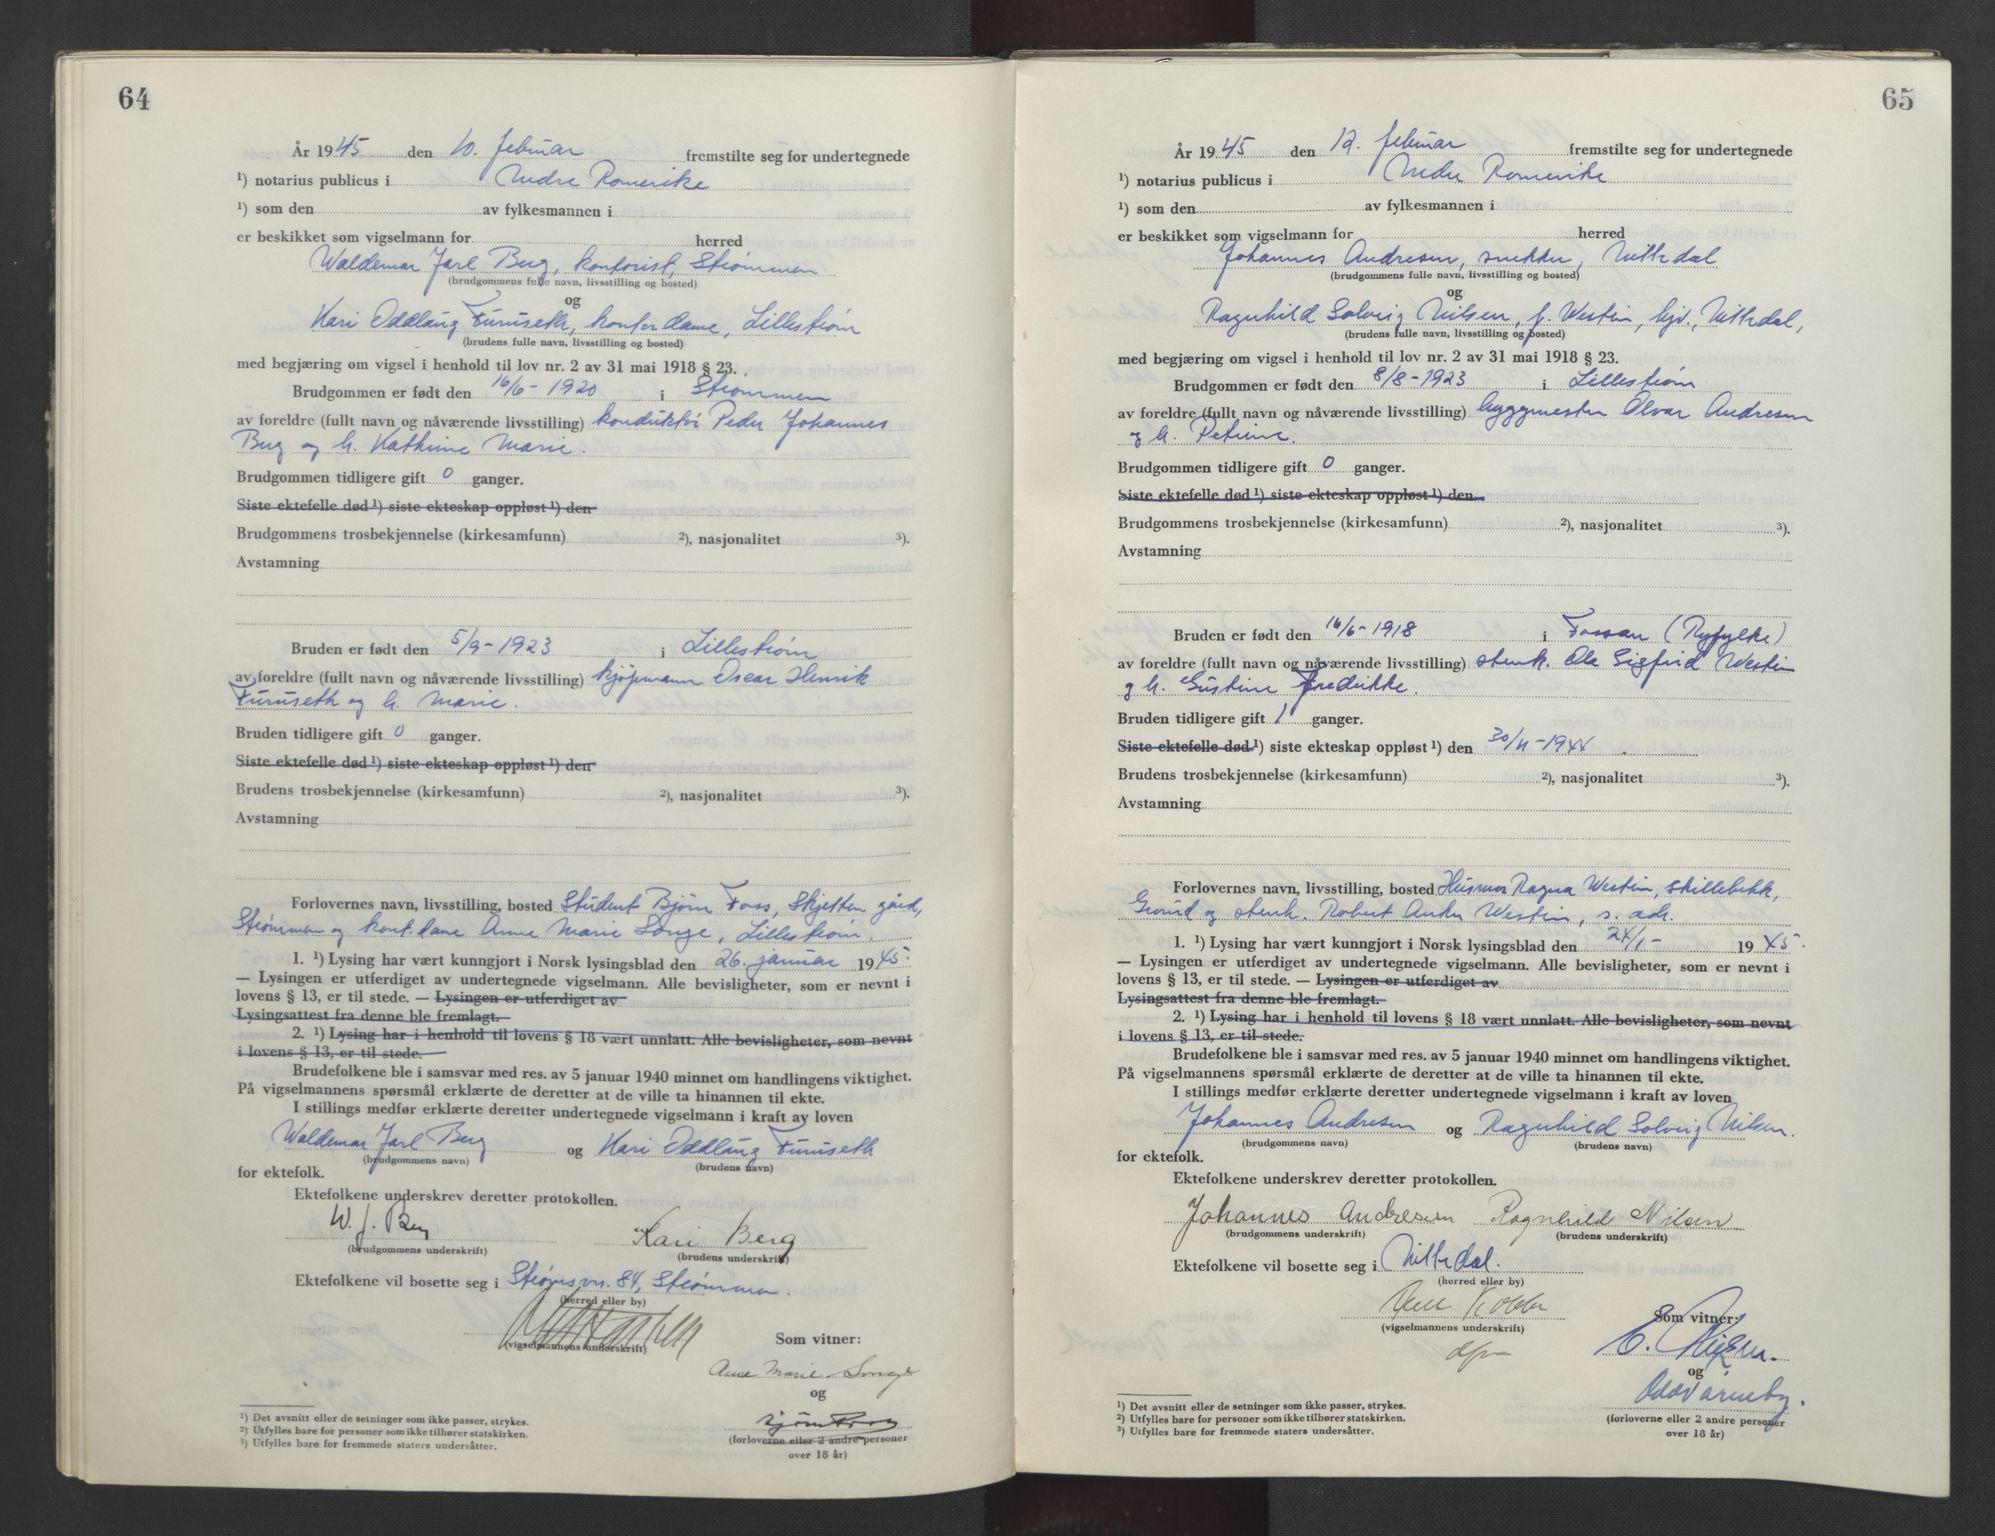 64
År 1945 den 10. februar fremstilte seg for undertegnede
¹) notarius publicus i Nedre Romerike
¹) som den av fylkesmannen i
er beskikket som vigselmann for herred
Waldemar Jarl Berg, kontorist, Strømmen
(brudgommens fulle navn, livsstilling og bosted)
og
Kari Oddlaug Furuseth, kontordame, Lillestrøm
(brudens fulle navn, livsstilling og bosted)
med begjæring om vigsel i henhold til lov nr. 2 av 31 mai 1918 § 23.
Brudgommen er født den 16/6-1920 i Strømmen
av foreldre (fullt navn og nåværende livsstilling) konduktør Peder Johannes
Berg og h. Kathrine Marie.
Brudgommen tidligere gift 0 ganger.
Siste ektefelle død ¹) siste ekteskap oppløst ¹) den
Brudgommens trosbekjennelse (kirkesamfunn) ²), nasjonalitet ³).
Avstamning
Bruden er født den 5/9-1923 i Lillestrøm
av foreldre (fullt navn og nåværende livsstilling) kjøpmann Oscar Henrik
Furuseth og h. Marie.
Bruden tidligere gift 0 ganger.
Siste ektefelle død ¹) siste ekteskap oppløst ¹) den
Brudens trosbekjennelse (kirkesamfunn) ²), nasjonalitet ³).
Avstamning
Forlovernes navn, livsstilling, bosted Student Bjørn Foss, Skjetten gård,
Strømmen og kont.dame Anne Marie Songe, Lillestrøm.
1. ¹) Lysing har vært kunngjort i Norsk lysingsblad den 26. januar 1945.
— Lysingen er utferdiget av undertegnede vigselmann. Alle bevisligheter, som er nevnt i
lovens § 13, er til stede. — Lysingen er utferdiget av
Lysingsattest fra denne ble fremlagt.
2. ¹) Lysing har i henhold til lovens § 18 vært unnlatt. Alle bevisligheter, som nevnt
i lovens § 13, er til stede.
Brudefolkene ble i samsvar med res. av 5 januar 1940 minnet om handlingens viktighet.
På vigselmannens spørsmål erklærte de deretter at de ville ta hinannen til ekte.
I stillings medfør erklærte deretter undertegnede vigselmann i kraft av loven
Waldemar Jarl Berg og Kari Oddlaug Furuseth
(brudgommens navn) (brudens navn)
for ektefolk.
Ektefolkene underskrev deretter protokollen.
W. J. Berg Kari Berg
(brudgommens underskrift) (brudens underskrift)
Ektefolkene vil bosette seg i Strømsvn. 84, Strømmen.
(herred eller by)
(vigselmannens underskrift)
Som vitner:
Anne Marie Songe
og
Bjørn Foss
(forloverne eller 2 andre personer
over 18 år)
¹) Det avsnitt eller de setninger som ikke passer, strykes.
²) Utfylles bare for personer som ikke tilhører statskirken.
³) Utfylles bare for fremmede staters undersåtter.
65
År 1945 den 12. februar fremstilte seg for undertegnede
¹) notarius publicus i Nedre Romerike
¹) som den av fylkesmannen i
er beskikket som vigselmann for herred
Johannes Andresen, snekker, Nittedal
(brudgommens fulle navn, livsstilling og bosted)
og
Ragnhild Solveig Nilsen, f. Westin, hjv., Nittedal,
(brudens fulle navn, livsstilling og bosted)
med begjæring om vigsel i henhold til lov nr. 2 av 31 mai 1918 § 23.
Brudgommen er født den 8/8-1923 i Lillestrøm
av foreldre (fullt navn og nåværende livsstilling) byggmester Olvar Andresen
og h. Petrine.
Brudgommen tidligere gift 0 ganger.
Siste ektefelle død ¹) siste ekteskap oppløst ¹) den
Brudgommens trosbekjennelse (kirkesamfunn) ²), nasjonalitet ³).
Avstamning
Bruden er født den 16/6-1918 i Fossan (Ryfylke)
av foreldre (fullt navn og nåværende livsstilling) stenh. Ole Sigfrid Westin
og h. Gustine Fredrikke.
Bruden tidligere gift 1 ganger.
Siste ektefelle død ¹) siste ekteskap oppløst ¹) den 30/11-1944
Brudens trosbekjennelse (kirkesamfunn) ²), nasjonalitet ³).
Avstamning
Forlovernes navn, livsstilling, bosted Husmor Ragna Westin, Skillebekk,
Grorud og stenh. Robert Anker Westin, s. adr.
1. ¹) Lysing har vært kunngjort i Norsk lysingsblad den 24/1- 1945.
— Lysingen er utferdiget av undertegnede vigselmann. Alle bevisligheter, som er nevnt i
lovens § 13, er til stede. — Lysingen er utferdiget av
Lysingsattest fra denne ble fremlagt.
2. ¹) Lysing har i henhold til lovens § 18 vært unnlatt. Alle bevisligheter, som nevnt
i lovens § 13, er til stede.
Brudefolkene ble i samsvar med res. av 5 januar 1940 minnet om handlingens viktighet.
På vigselmannens spørsmål erklærte de deretter at de ville ta hinannen til ekte.
I stillings medfør erklærte deretter undertegnede vigselmann i kraft av loven
Johannes Andresen og Ragnhild Solveig Nilsen.
(brudgommens navn) (brudens navn)
for ektefolk.
Ektefolkene underskrev deretter protokollen.
Johannes Andresen Ragnhild Nilsen
(brudgommens underskrift) (brudens underskrift)
Ektefolkene vil bosette seg i Nittedal.
(herred eller by)
(vigselmannens underskrift)
Som vitner:
og
(forloverne eller 2 andre personer
over 18 år)
¹) Det avsnitt eller de setninger som ikke passer, strykes.
²) Utfylles bare for personer som ikke tilhører statskirken.
³) Utfylles bare for fremmede staters undersåtter.